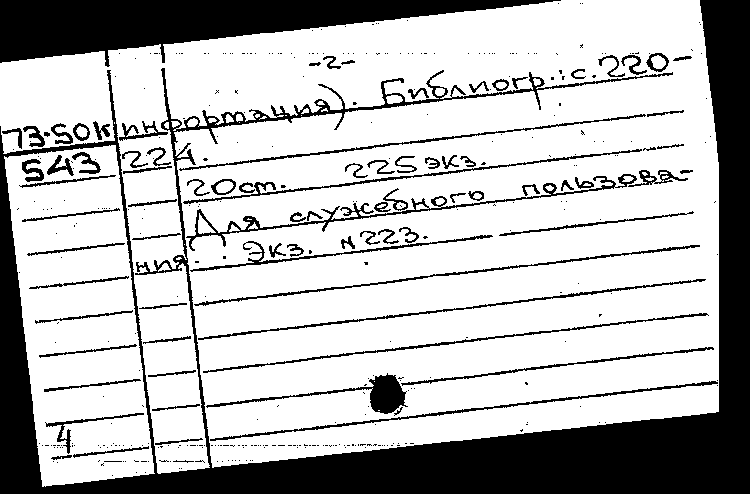 -2-
73-50к информация). Библиогр.: с. 220-
543 224.
20см. 225 экз.
Для служебного пользова-
ния. Экз. №223.
4